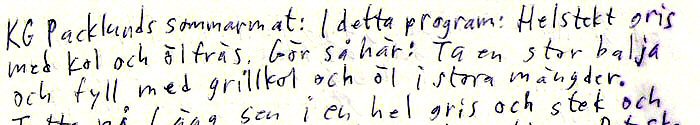 KG Packlunds sommarmat: I detta program: Helstekt gris
med kol och ölfräs. Gör så här: Ta en stor balja
och fyll med grillkol och öl i stora mängder.
på Lägg sen i en hel gris och stek och